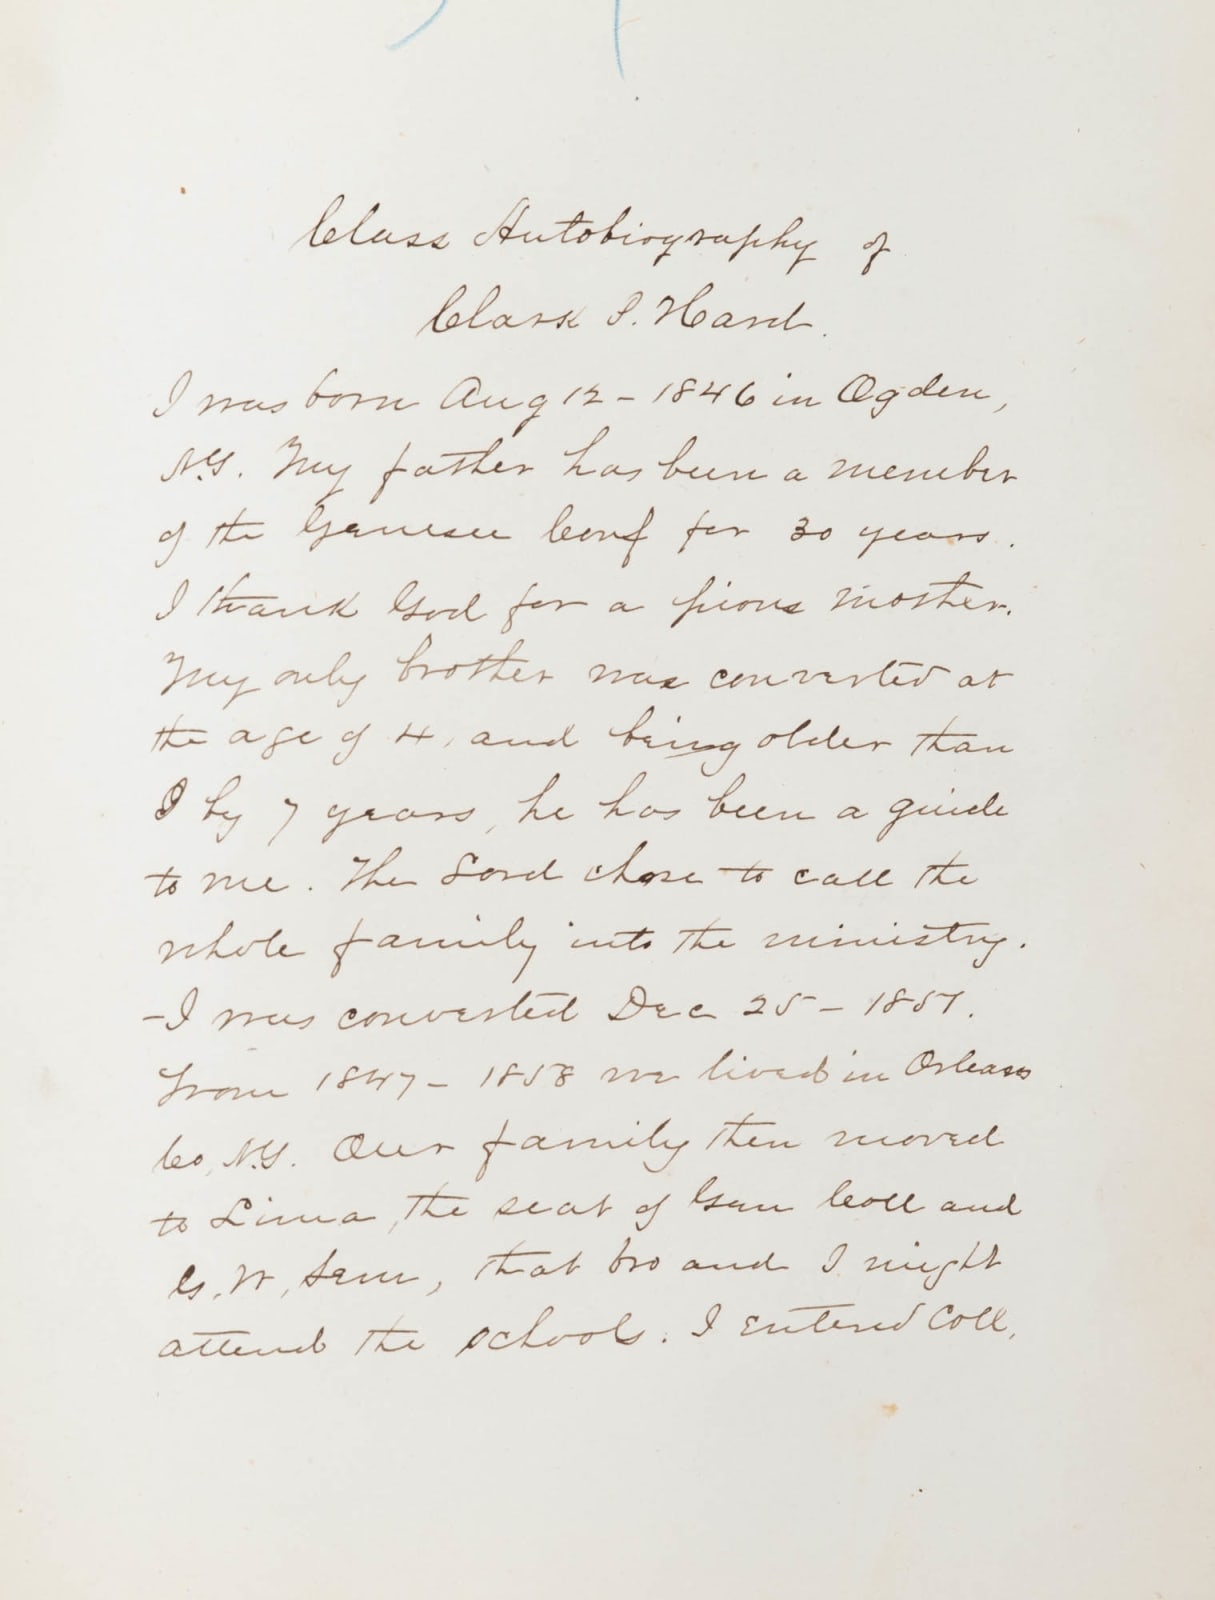 Class Autobiography of
Clark P. Hard.
I was born Aug 12 - 1846 in Ogden,
N.Y. My father has been a member
of the Genesee Conf for 30 years.
I thank God for a pious mother.
My only brother was converted at
the age of 4, and being older than
I by 7 years, he has been a guide
to me. The Lord chose to call the
whole family into the ministry.
- I was converted Dec 25 - 1857.
From 1847 - 1858 we lived in Orleans
Co, N.Y. Our family then moved
to Lima, the seat of Gen Coll and
G. W. Sem, that bro and I might
attend the schools. I entered Coll,